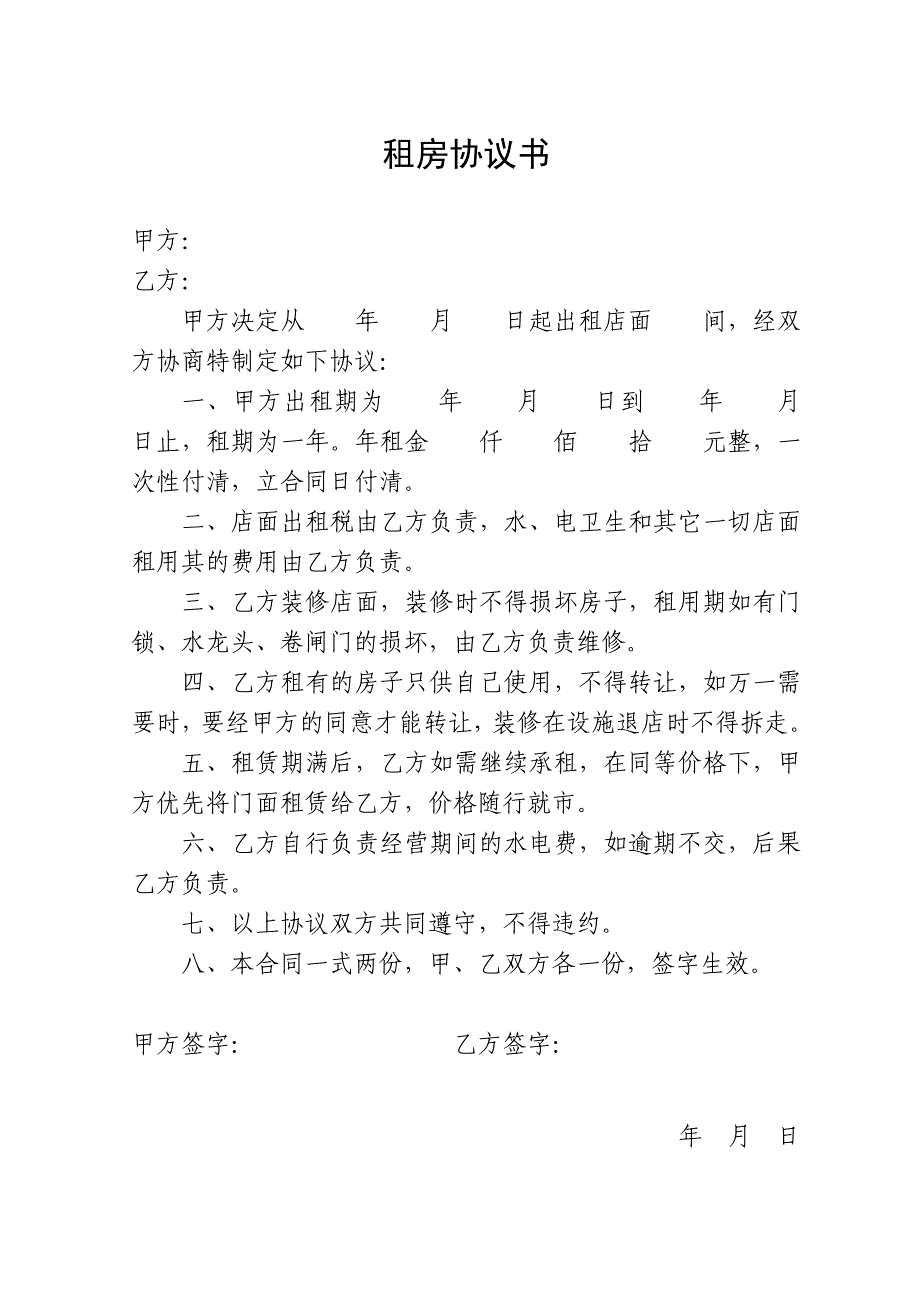 租房协议书
甲方：
乙方：
甲方决定从　　年　　月　　日起出租店面　　间，经双
方协商特制定如下协议：
一、甲方出租期为　　年　　月　　日到　　年　　月
日止，租期为一年。年租金　　仟　　佰　　拾　　元整，一
次性付清，立合同日付清。
二、店面出租税由乙方负责，水、电卫生和其它一切店面
租用其的费用由乙方负责。
三、乙方装修店面，装修时不得损坏房子，租用期如有门
锁、水龙头、卷闸门的损坏，由乙方负责维修。
四、乙方租有的房子只供自己使用，不得转让，如万一需
要时，要经甲方的同意才能转让，装修在设施退店时不得拆走。
五、租赁期满后，乙方如需继续承租，在同等价格下，甲
方优先将门面租赁给乙方，价格随行就市。
六、乙方自行负责经营期间的水电费，如逾期不交，后果
乙方负责。
七、以上协议双方共同遵守，不得违约。
八、本合同一式两份，甲、乙双方各一份，签字生效。
甲方签字：　　　　　　　　乙方签字：
年　月　日